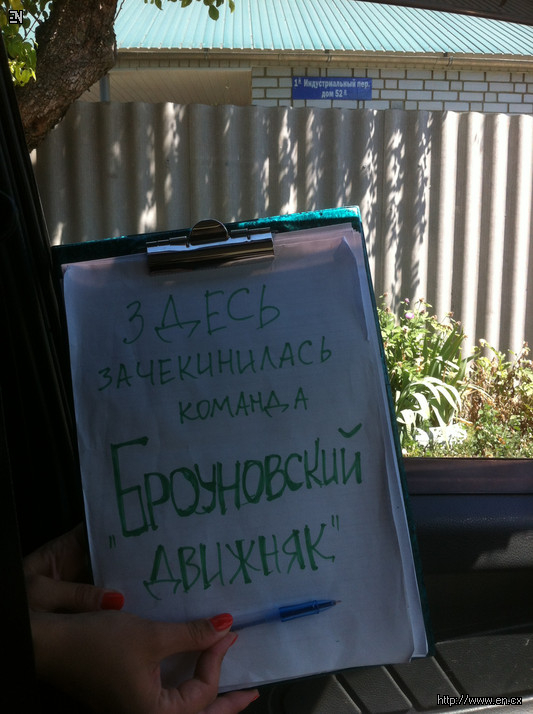 EN
1й Индустриальный пер.
дом 52а
ЗДЕСЬ
ЗАЧЕКИНИЛАСЬ
КОМАНДА
"БРОУНОВСКИЙ
ДВИЖНЯК"
http://www.en.cx